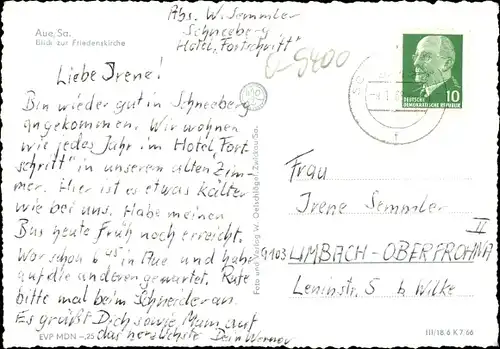 Aue/Sa.
Blick zur Friedenskirche
Abs. W. Semmler
Schneeberg
Hotel „Fortschritt"
E-5400
Liebe Irene!
Bin wieder gut in Schneeberg
angekommen. Wir wohnen
wie jedes Jahr im Hotel „Fort
schritt" in unserem alten Zim-
mer. Hier ist es etwas kälter
wie bei uns. Habe meinen
Bus heute Früh noch erreicht.
War schon 6 45 in Aue und habe
auf die anderen gewartet. Rufe
bitte mal beim Schneider an.
Es grüßt Dich sowie Mam auf
das herzlichste Dein Werner
EVP MDN -,25
Foto und Verlag W. Oelschlägel, Zwickau Sa.
DEUTSCHE
DEMOKRATISCHE REPUBLIK
10
Frau
Irene Semmler
9103 LIMBACH-OBERFROHNA II
Leninstr. 5 b. Wilke
III/18.6 K 7.66